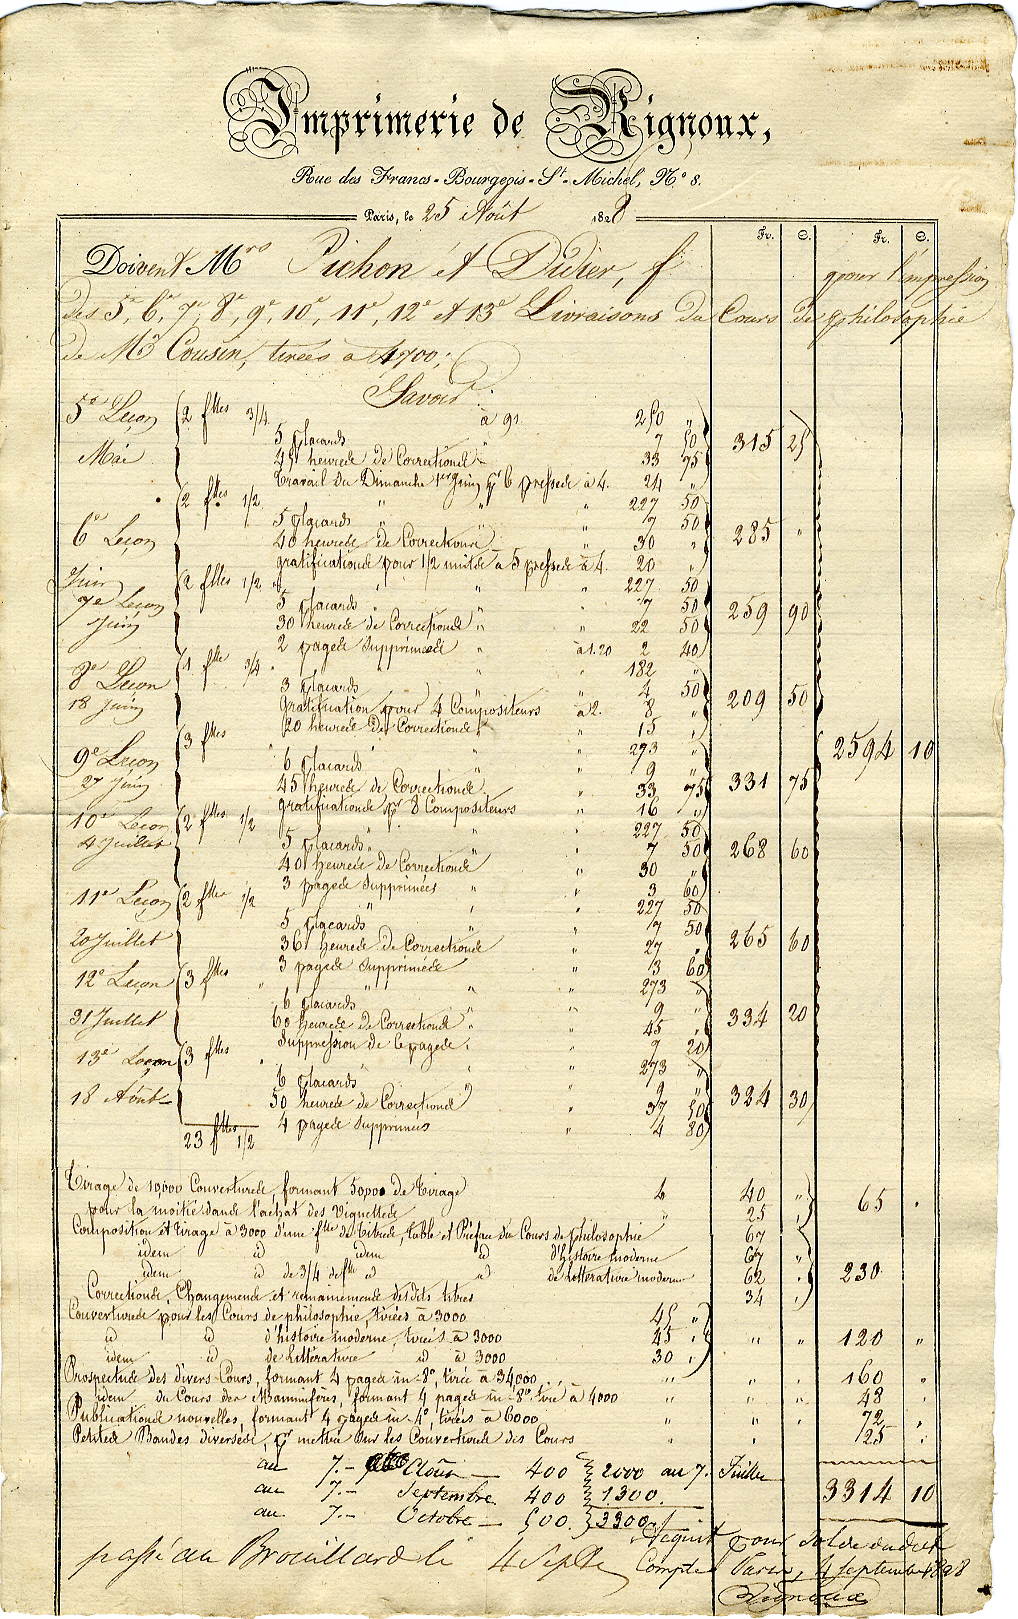 Imprimerie de Rignoux,
Rue des Francs-Bourgeois-St-Michel, N.º 8.
Paris, le 25 Août 1828
Fr. C. Fr. C.
Doivent Mrs Pichon et Didier, pour l'impression
des 5e, 6e, 7e, 8e, 9e, 10e, 11e, 12e et 13e Livraisons du Cours de philosophie
de Mr Cousin, tirées à 4700;
Savoir:
5e Leçon (2 flles 3/4 à 91 250 "
5 placards " 7 50 315 25
Mai 45 heures de Corrections 33 75
travail du Dimanche 1er Juin pr 6 presses à 4. 24 "
(2 flles 1/2 " " 227 50
5 placards " " 7 50
6e Leçon 40 heures de Corrections " 30 " 285 "
gratifications pour 1/2 nuit à 5 presses à 4. 20 "
Juin (2 flles 1/2 " " 227 50
7e Leçon 5 placards " " 7 50 259 90
Juin 30 heures de Corrections " 22 50
2 pages supprimées " à 1.20 2 40
(1 flle 3/4 " " 182 "
8e Leçon 3 placards " 4 50
18 Juin gratification pour 4 Compositeurs à 2. 8 " 209 50
20 heures de Corrections " 15 "
(3 flles " 273 " 2594 10
9e Leçon 6 placards " 9 "
27 Juin 45 heures de Corrections " 33 75 331 75
gratifications pr 8 Compositeurs " 16 "
10e Leçon (2 flles 1/2 " 227 50
4 Juillet 5 placards " " 7 50 268 60
40 heures de Corrections " 30 "
3 pages supprimées " " 3 60
11e Leçon (2 flles 1/2 " 227 50
5 placards " " 7 50
20 Juillet 36 heures de Corrections " 27 " 265 60
3 pages supprimées " 3 60
12e Leçon (3 flles " " 273 "
6 placards " " 9 "
31 Juillet 60 heures de Corrections " 45 " 334 20
suppression de 6 pages " 9 20
13e Leçon (3 flles " 273 "
6 placards " " 9 "
18 Août 50 heures de Corrections " 37 50 324 30
4 pages supprimées " 4 80
23 flles 1/2
Tirage de 10,000 Couvertures, formant 50,000 de tirage 40 " 65 "
pour la moitié dans l'achat des Vignettes " 25 "
Composition et tirage à 3000 d'une flle de titres, table et Préface du Cours de philosophie 67
idem id idem id d'histoire moderne 67 "
idem id de 3/4 de flle id id de littérature moderne 62 " 230
Corrections, Changements et remaniements desdits titres 34 "
Couvertures pour les Cours de philosophie, tirées à 3000 45 "
id id d'histoire moderne, tirées à 3000 45 " " " 120 "
idem id de littérature id à 3000 30 "
Prospectus des divers Cours, formant 4 pages in-8º, tirés à 34,000 " " " 160 "
idem du Cours des Mammifères, formant 4 pages in-8º tiré à 4000 " " " 48 "
Publications nouvelles, formant 4 pages in-4º, tirées à 6000 " " " 72 "
Petites Bandes diverses, pr mettre sur les Couvertures des Cours " " 25 "
au 7.- Août — 400 } 2000 au 7. Juillet
au 7.- Septembre 400 } 1300 3314 10
au 7.- Octobre — 500 } 3300
Acquit pour solde dudit
passé au Brouillard le 4 Septe Compte Paris, 4 septembre 1828
Rignoux